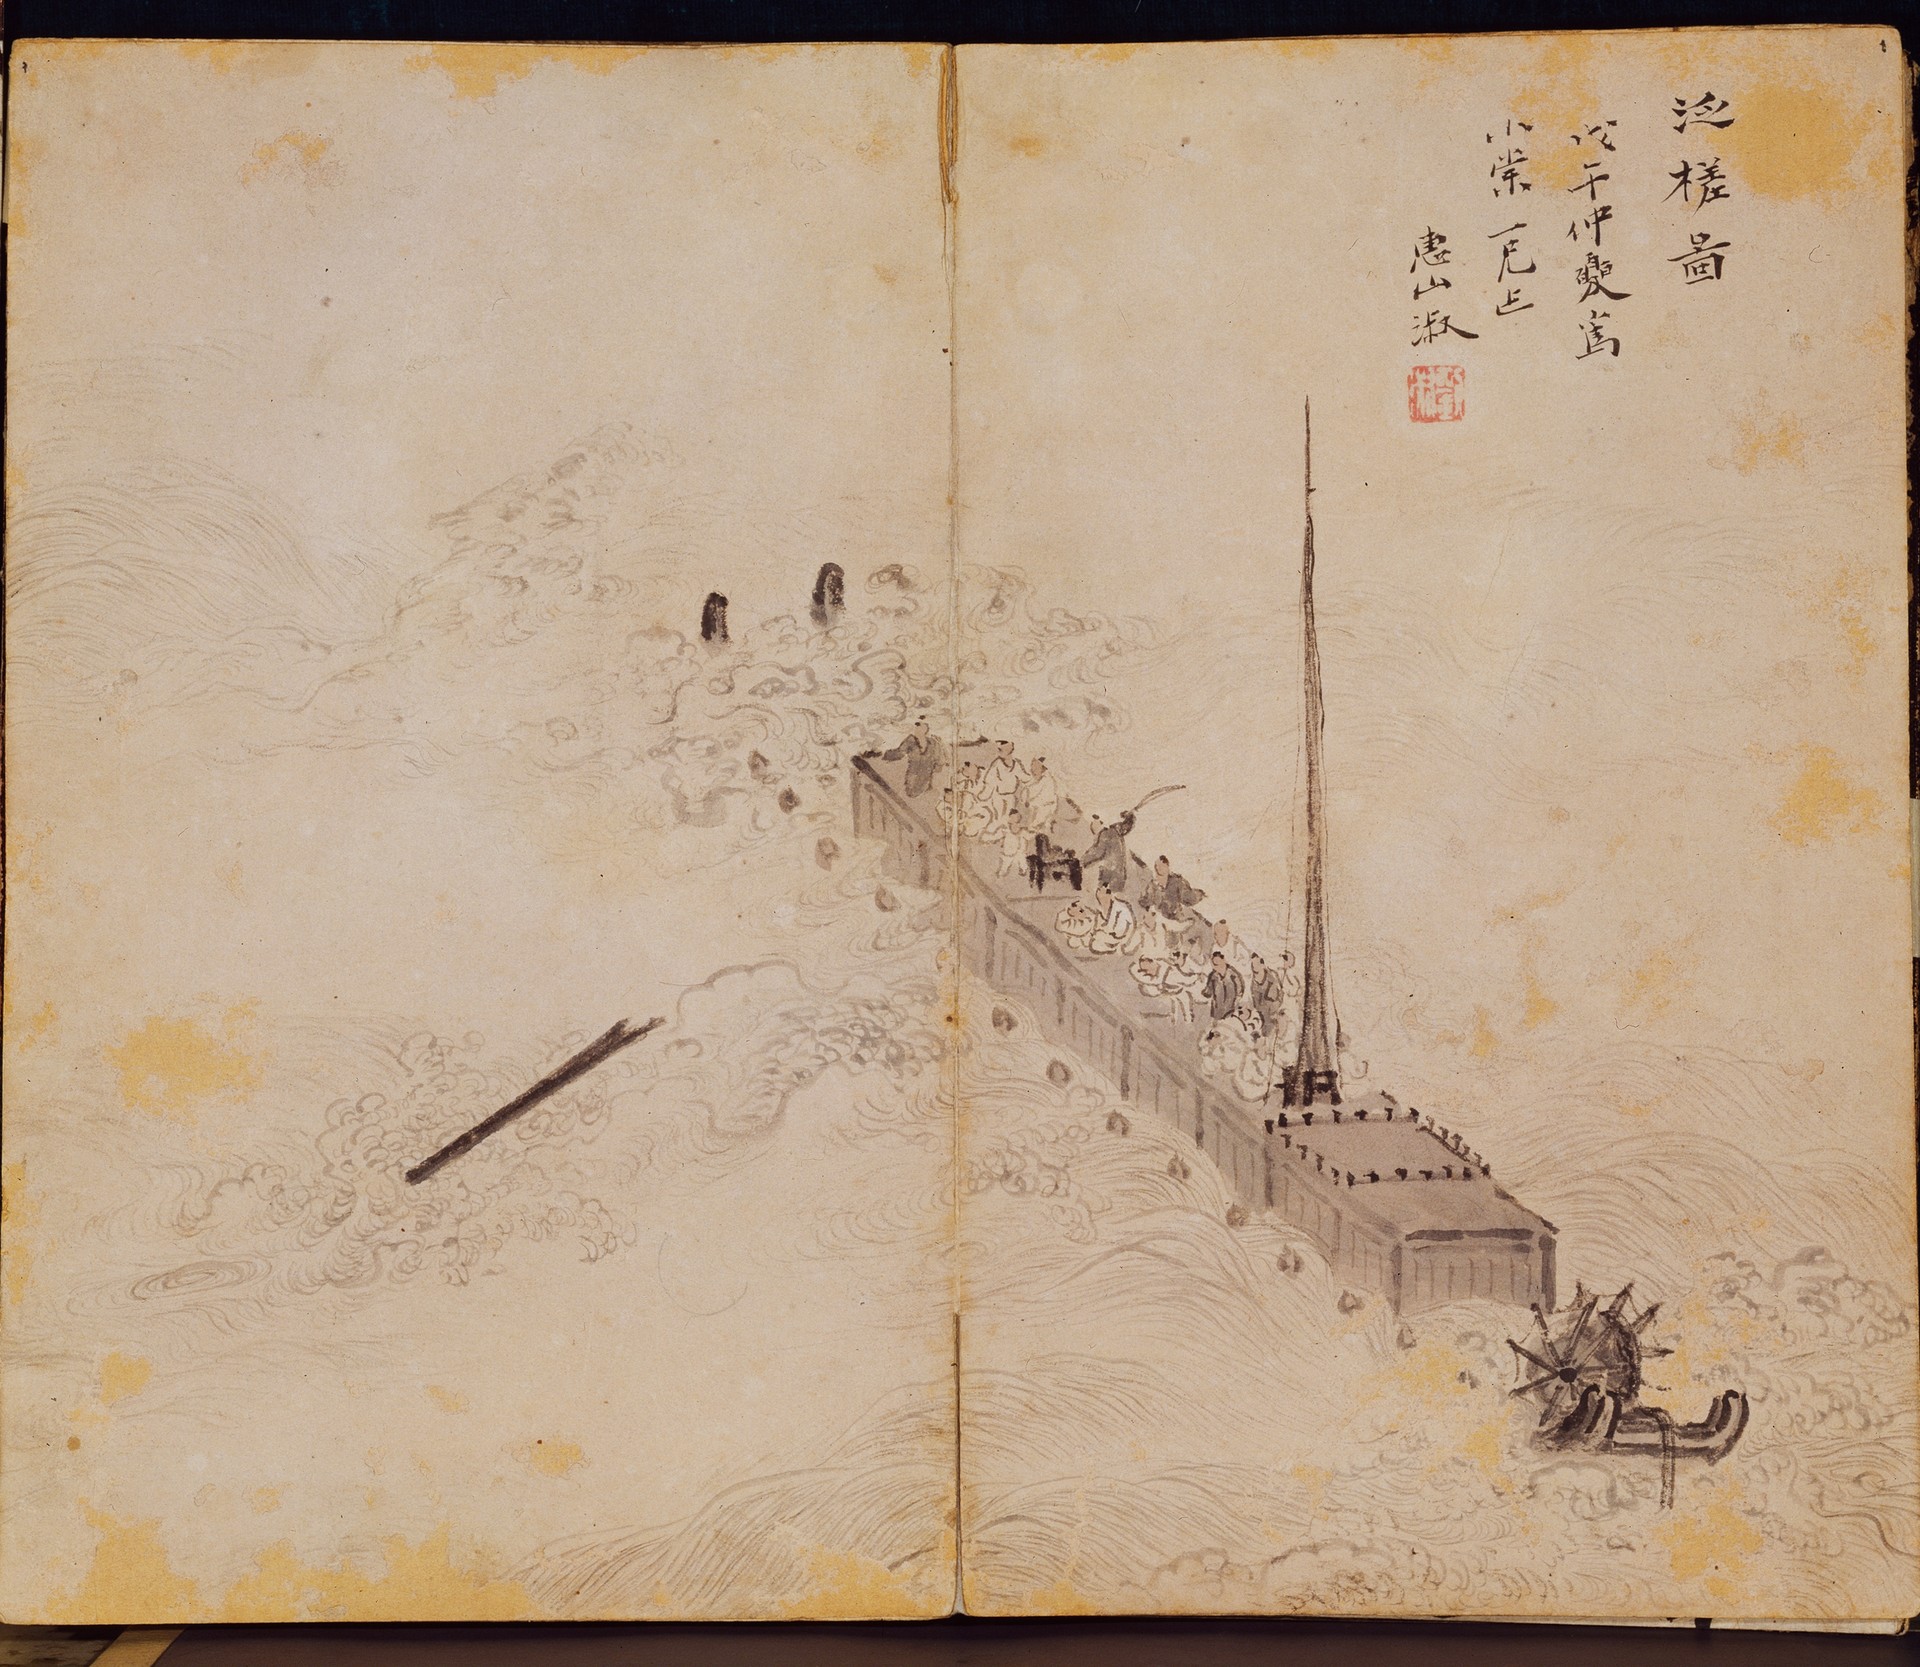 泛槎圖
戊午仲夏寫
小棠一正
惠山淑